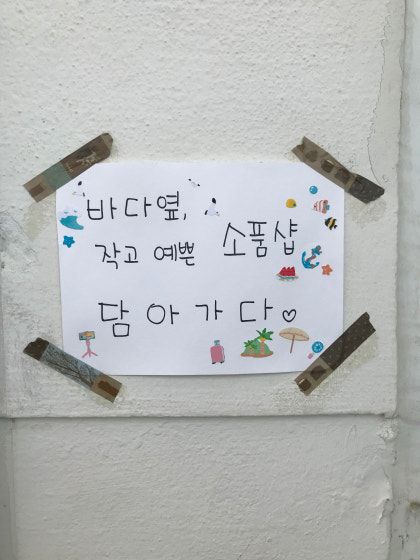 바다옆,
작고 예쁜 소품샵
담아가다♡